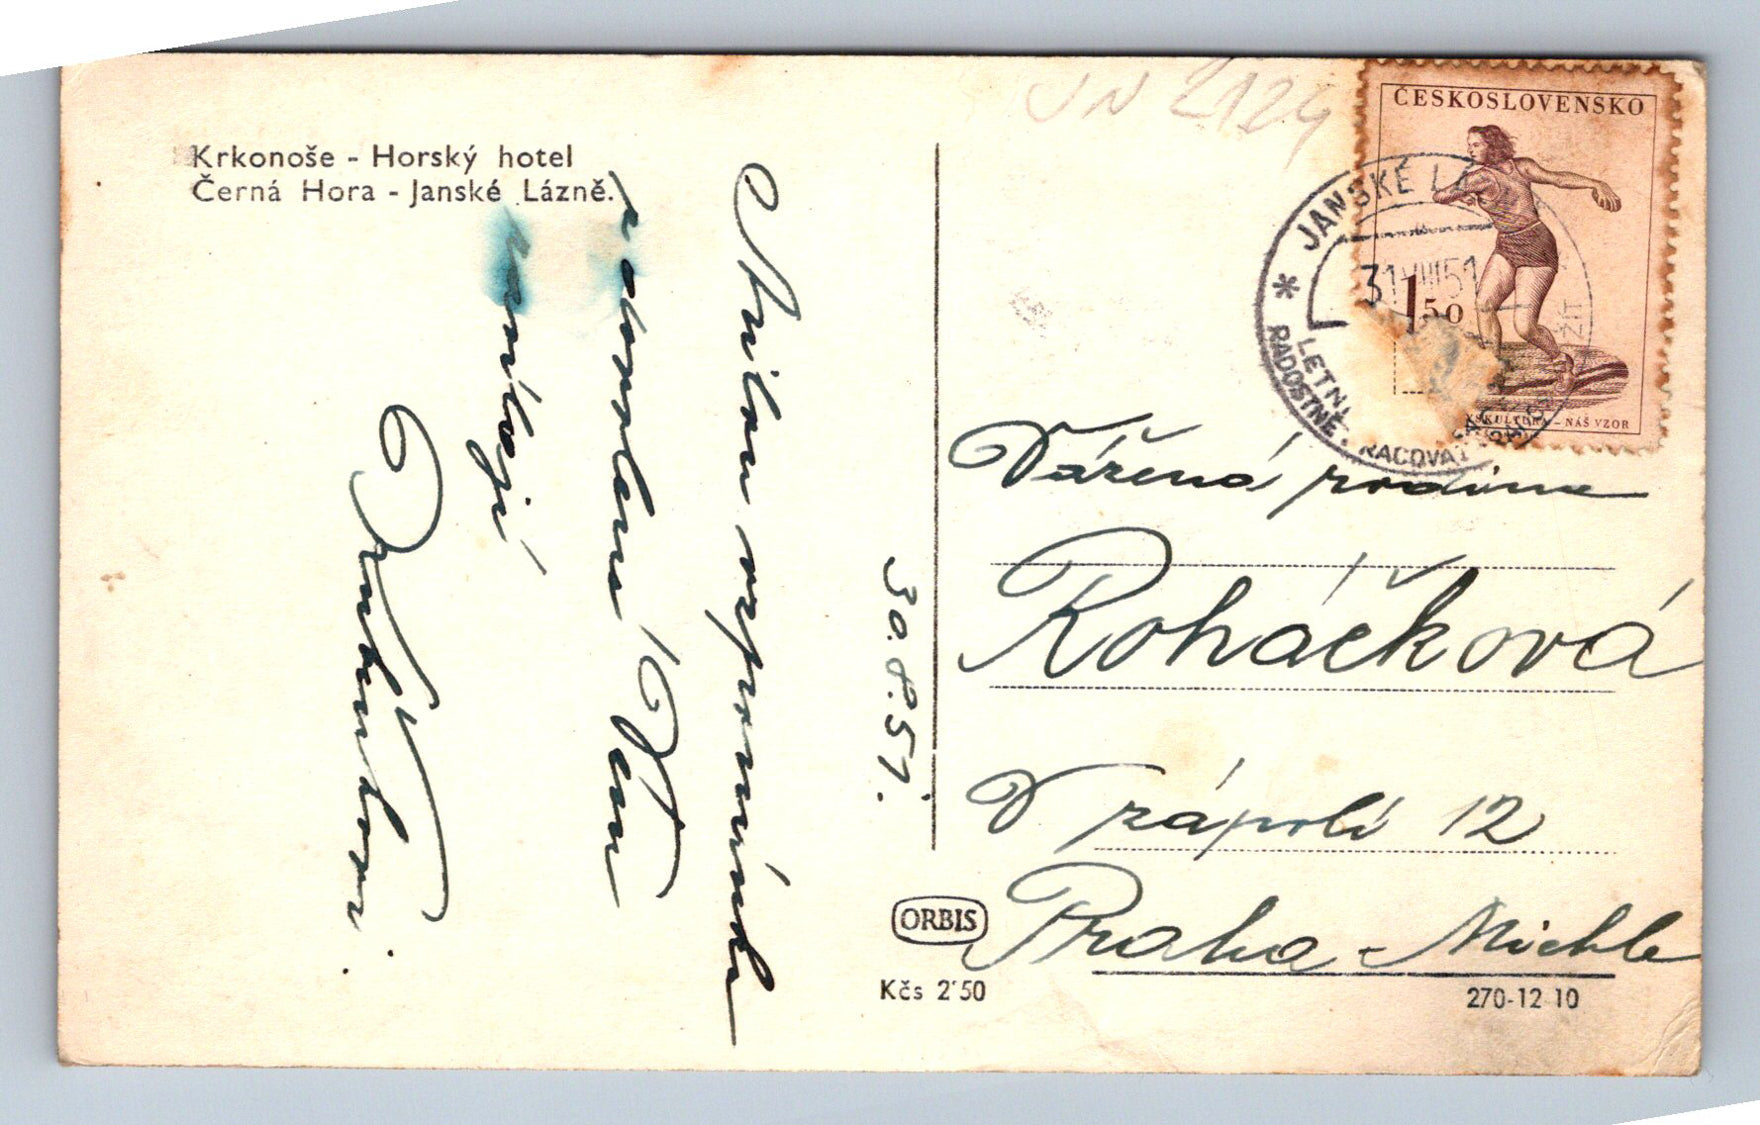 Krkonoše - Horský hotel
Černá Hora - Janské Lázně.
30.8.51.
Milou vzpomínku
z dovolené Vám
zasílají
JN 2124
ČESKOSLOVENSKO
1 50
NÁŠ VZOR
* JANSKÉ LÁ
31 VIII 51
LETNÍ
RADOSTNĚ
RACOVAT
ŽÍT
Vážená rodina
Roháčková
V zápolí 12
Praha - Michle
ORBIS
Kčs 2'50
270-12 10